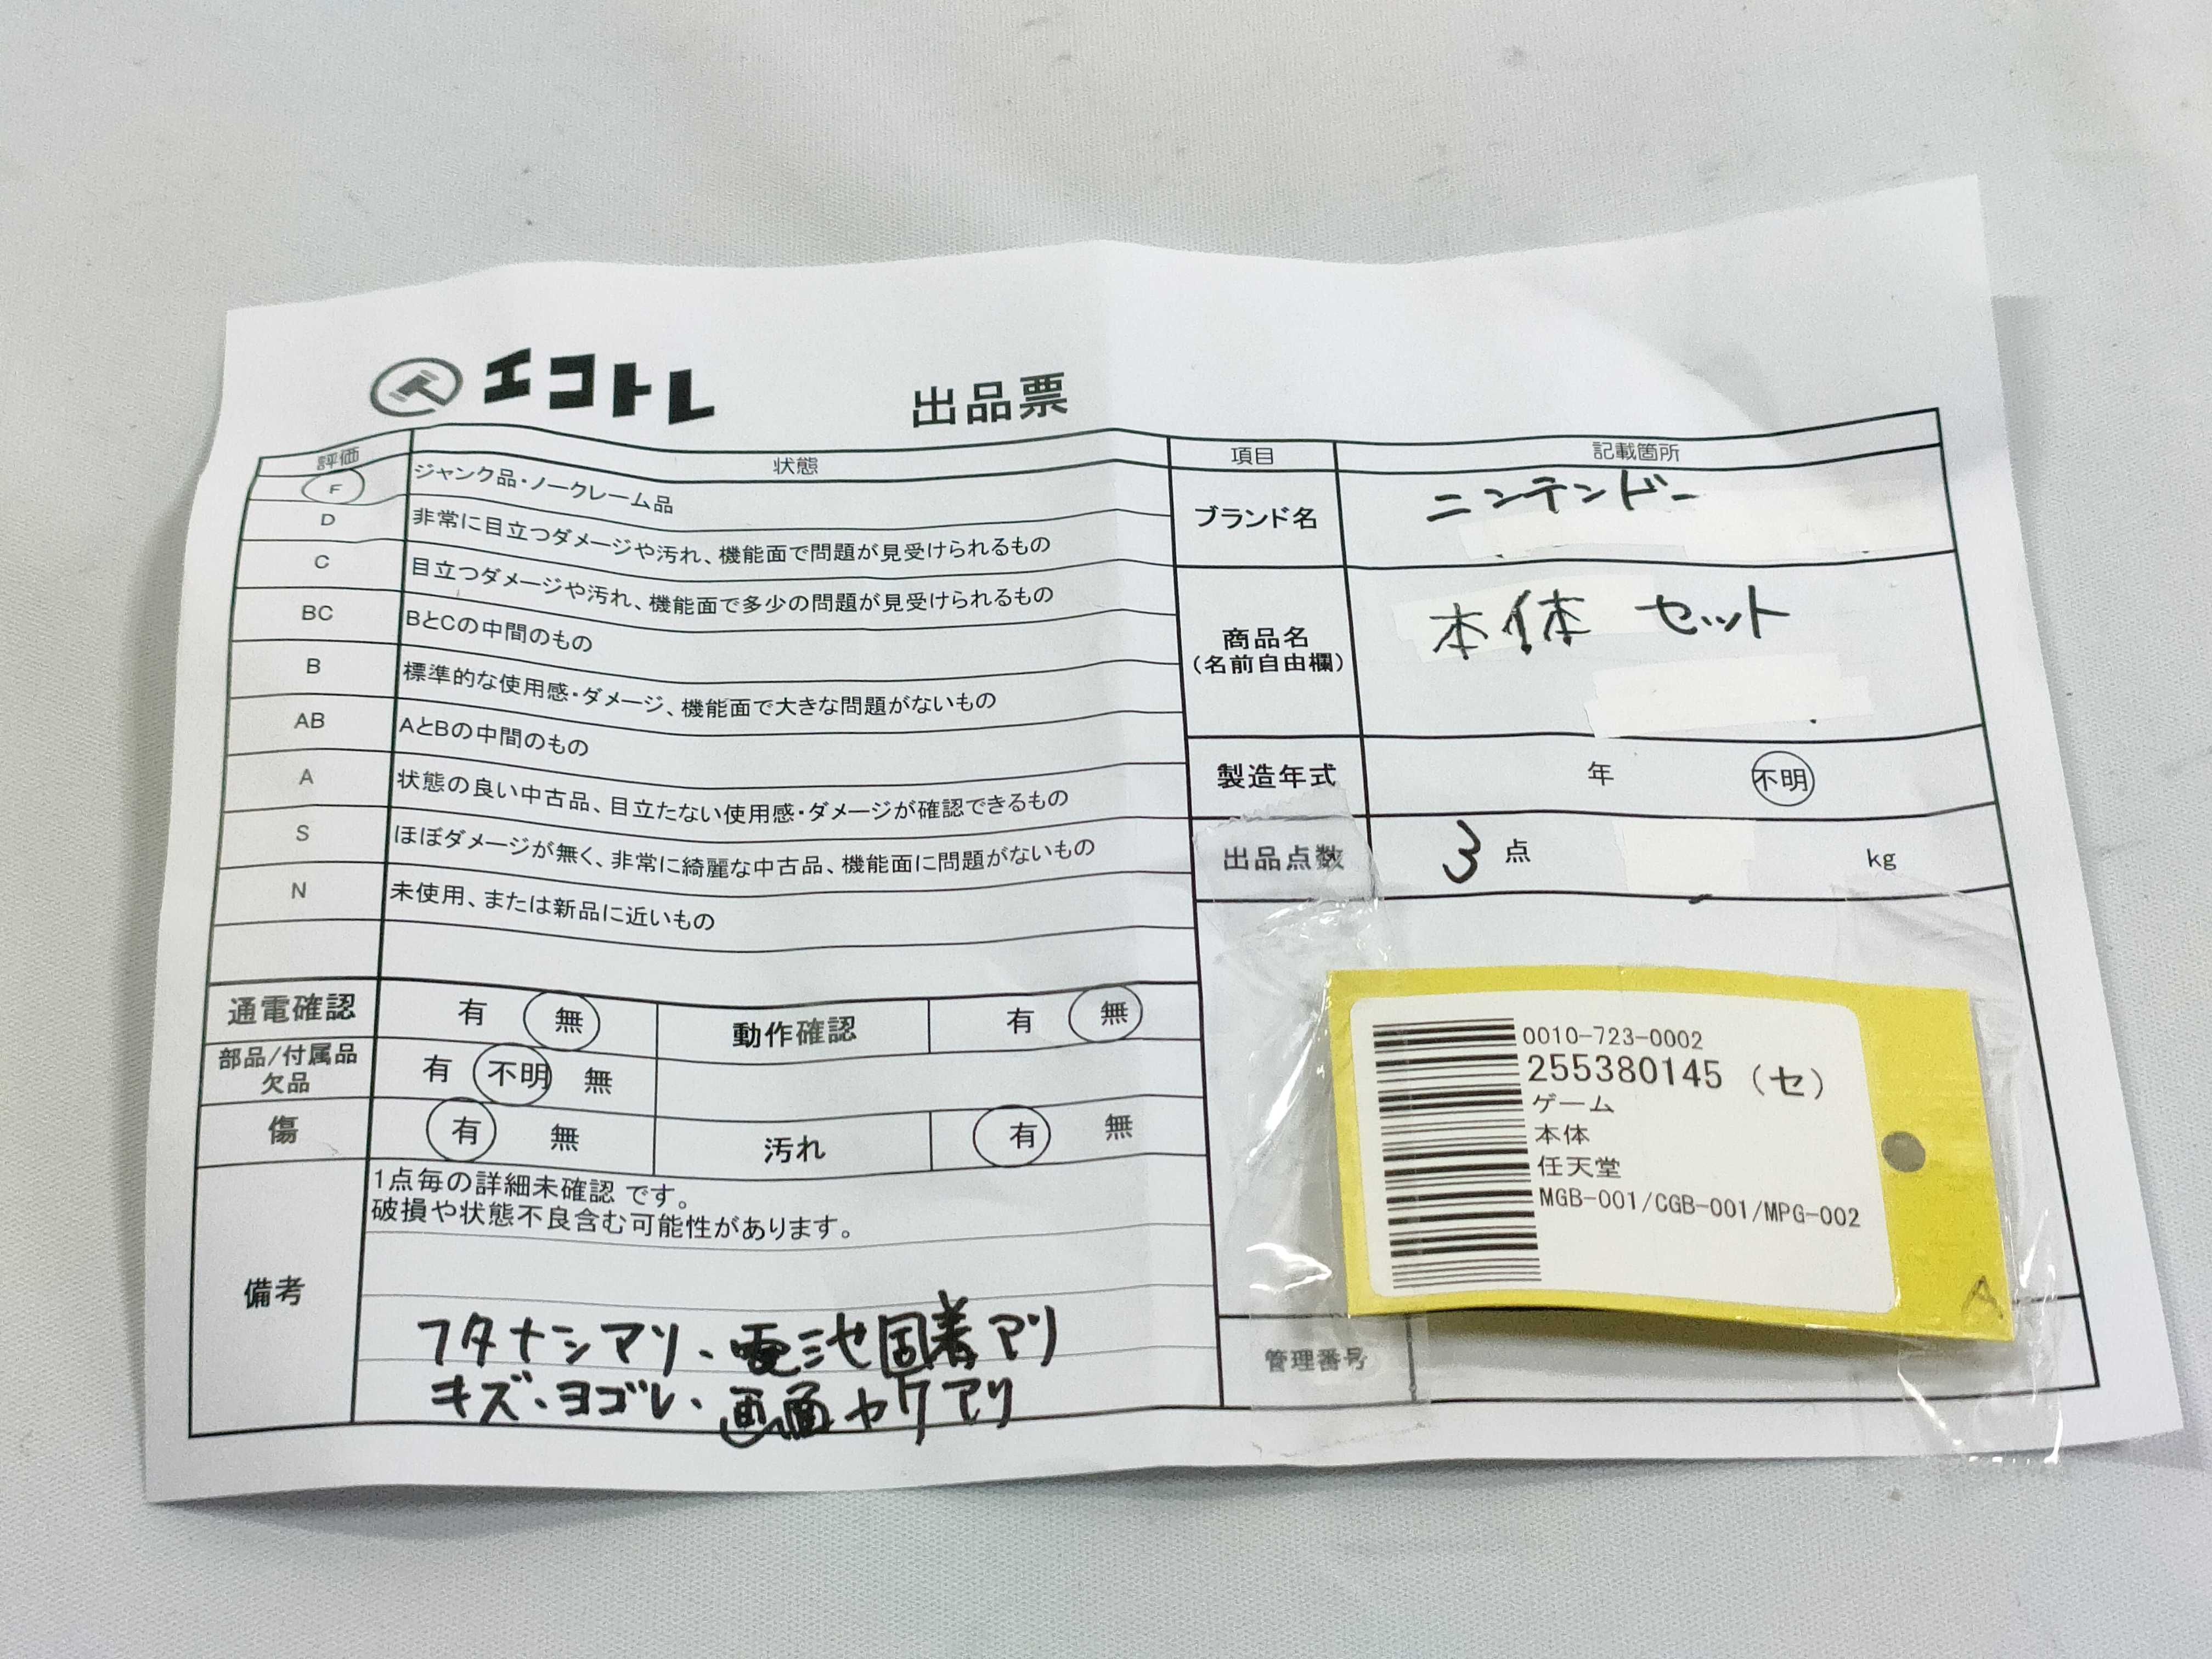 エコトレ
出品票
評価 状態
F ジャンク品・ノークレーム品
D 非常に目立つダメージや汚れ、機能面で問題が見受けられるもの
C 目立つダメージや汚れ、機能面で多少の問題が見受けられるもの
BC BとCの中間のもの
B 標準的な使用感・ダメージ、機能面で大きな問題がないもの
AB AとBの中間のもの
A 状態の良い中古品、目立たない使用感・ダメージが確認できるもの
S ほぼダメージが無く、非常に綺麗な中古品、機能面に問題がないもの
N 未使用、または新品に近いもの
通電確認 有 無 動作確認 有 無
部品/付属品
欠品 有 不明 無
傷 有 無 汚れ 有 無
備考
1点毎の詳細未確認 です。
破損や状態不良含む可能性があります。
フタナシアリ、電池固着アリ
キズ、ヨゴレ、画面ヤケアリ
項目 記載箇所
ブランド名 ニンテンドー
商品名
(名前自由欄) 本体 セット
製造年式 年 不明
出品点数 3 点 kg
0010-723-0002
255380145 (セ)
ゲーム
本体
任天堂
MGB-001/CGB-001/MPG-002
A
管理番号